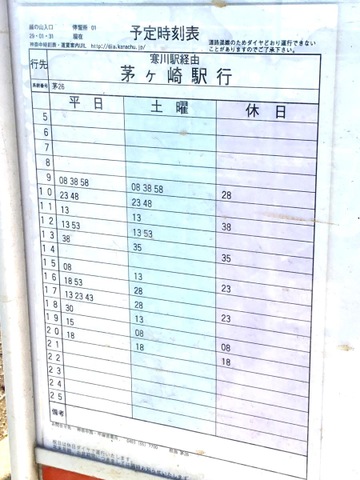 緑の山入口 停留所 01
29・01・31 現在
予定時刻表
時刻平時刻表・運賃案内URL http://dia.kanachu.jp/
道路混雑のためダイヤどおり運行できない
ことがありますのでご了承下さい。
行先 寒川駅経由
茅ヶ崎駅行
系統番号 茅26
平日 土曜 休日
5
6
7
8
9 08 38 58 08 38 58
10 23 48 23 48 28
11 13 13
12 13 53 13 53 38
13 38 35
14 35
15 08
16 18 53 13 23
17 13 23 43 28
18 30 28 23
19 15 13
20 18 08
21 18 08
22 18
23
24
25
備考